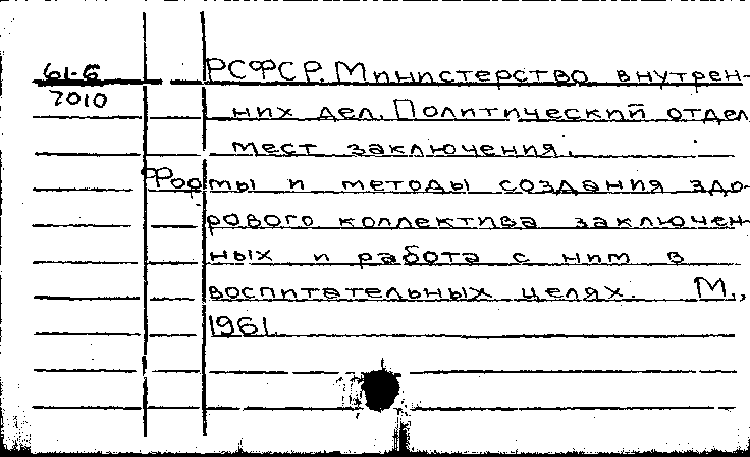 61-6
7010
РСФСР. Министерство внутрен-
них дел. Политический отдел
мест заключения.
Формы и методы создания здо-
рового коллектива заключен-
ных и работа с ним в
воспитательных целях. М.,
1961.